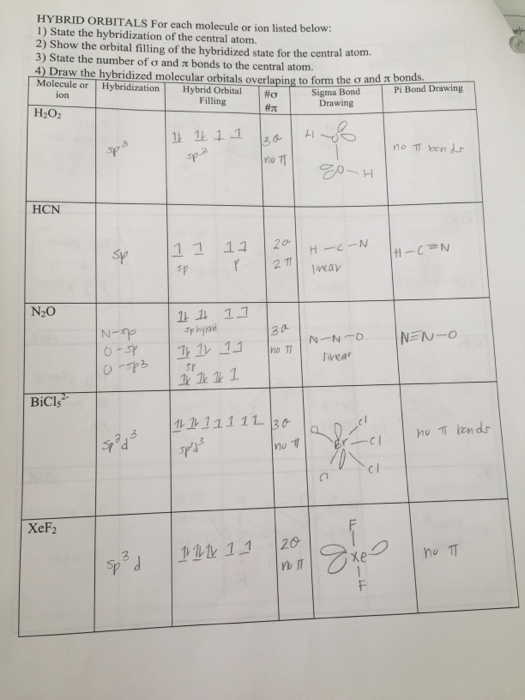 HYBRID ORBITALS For each molecule or ion listed below:
1) State the hybridization of the central atom.
2) Show the orbital filling of the hybridized state for the central atom.
3) State the number of σ and π bonds to the central atom.
4) Draw the hybridized molecular orbitals overlaping to form the σ and π bonds.
Molecule or ion Hybridization Hybrid Orbital Filling #σ #π Sigma Bond Drawing Pi Bond Drawing
H₂O₂
sp³
1l 1l 1 1
sp³
3σ
no π
H
O-H
no π bonds
HCN
sp
1 1 1 1
sp p
2σ
2π
H-C-N
linear
H-C≡N
N₂O
N-sp
O-sp
O-sp3
1l 1l 1 1
sp hybrid
1l 1l 1 1
sp
1l 1l 1l 1
3σ
no π
N-N-O
linear
N≡N-O
BiCl₅²⁻
sp³d³
1l 1l 1 1 1 1
sp³d³
3σ
no π
Cl
Cl
Br-Cl
Cl
Cl
no π bonds
XeF₂
sp³d
1l 1l 1l 1 1
2σ
no π
F
Xe
F
no π